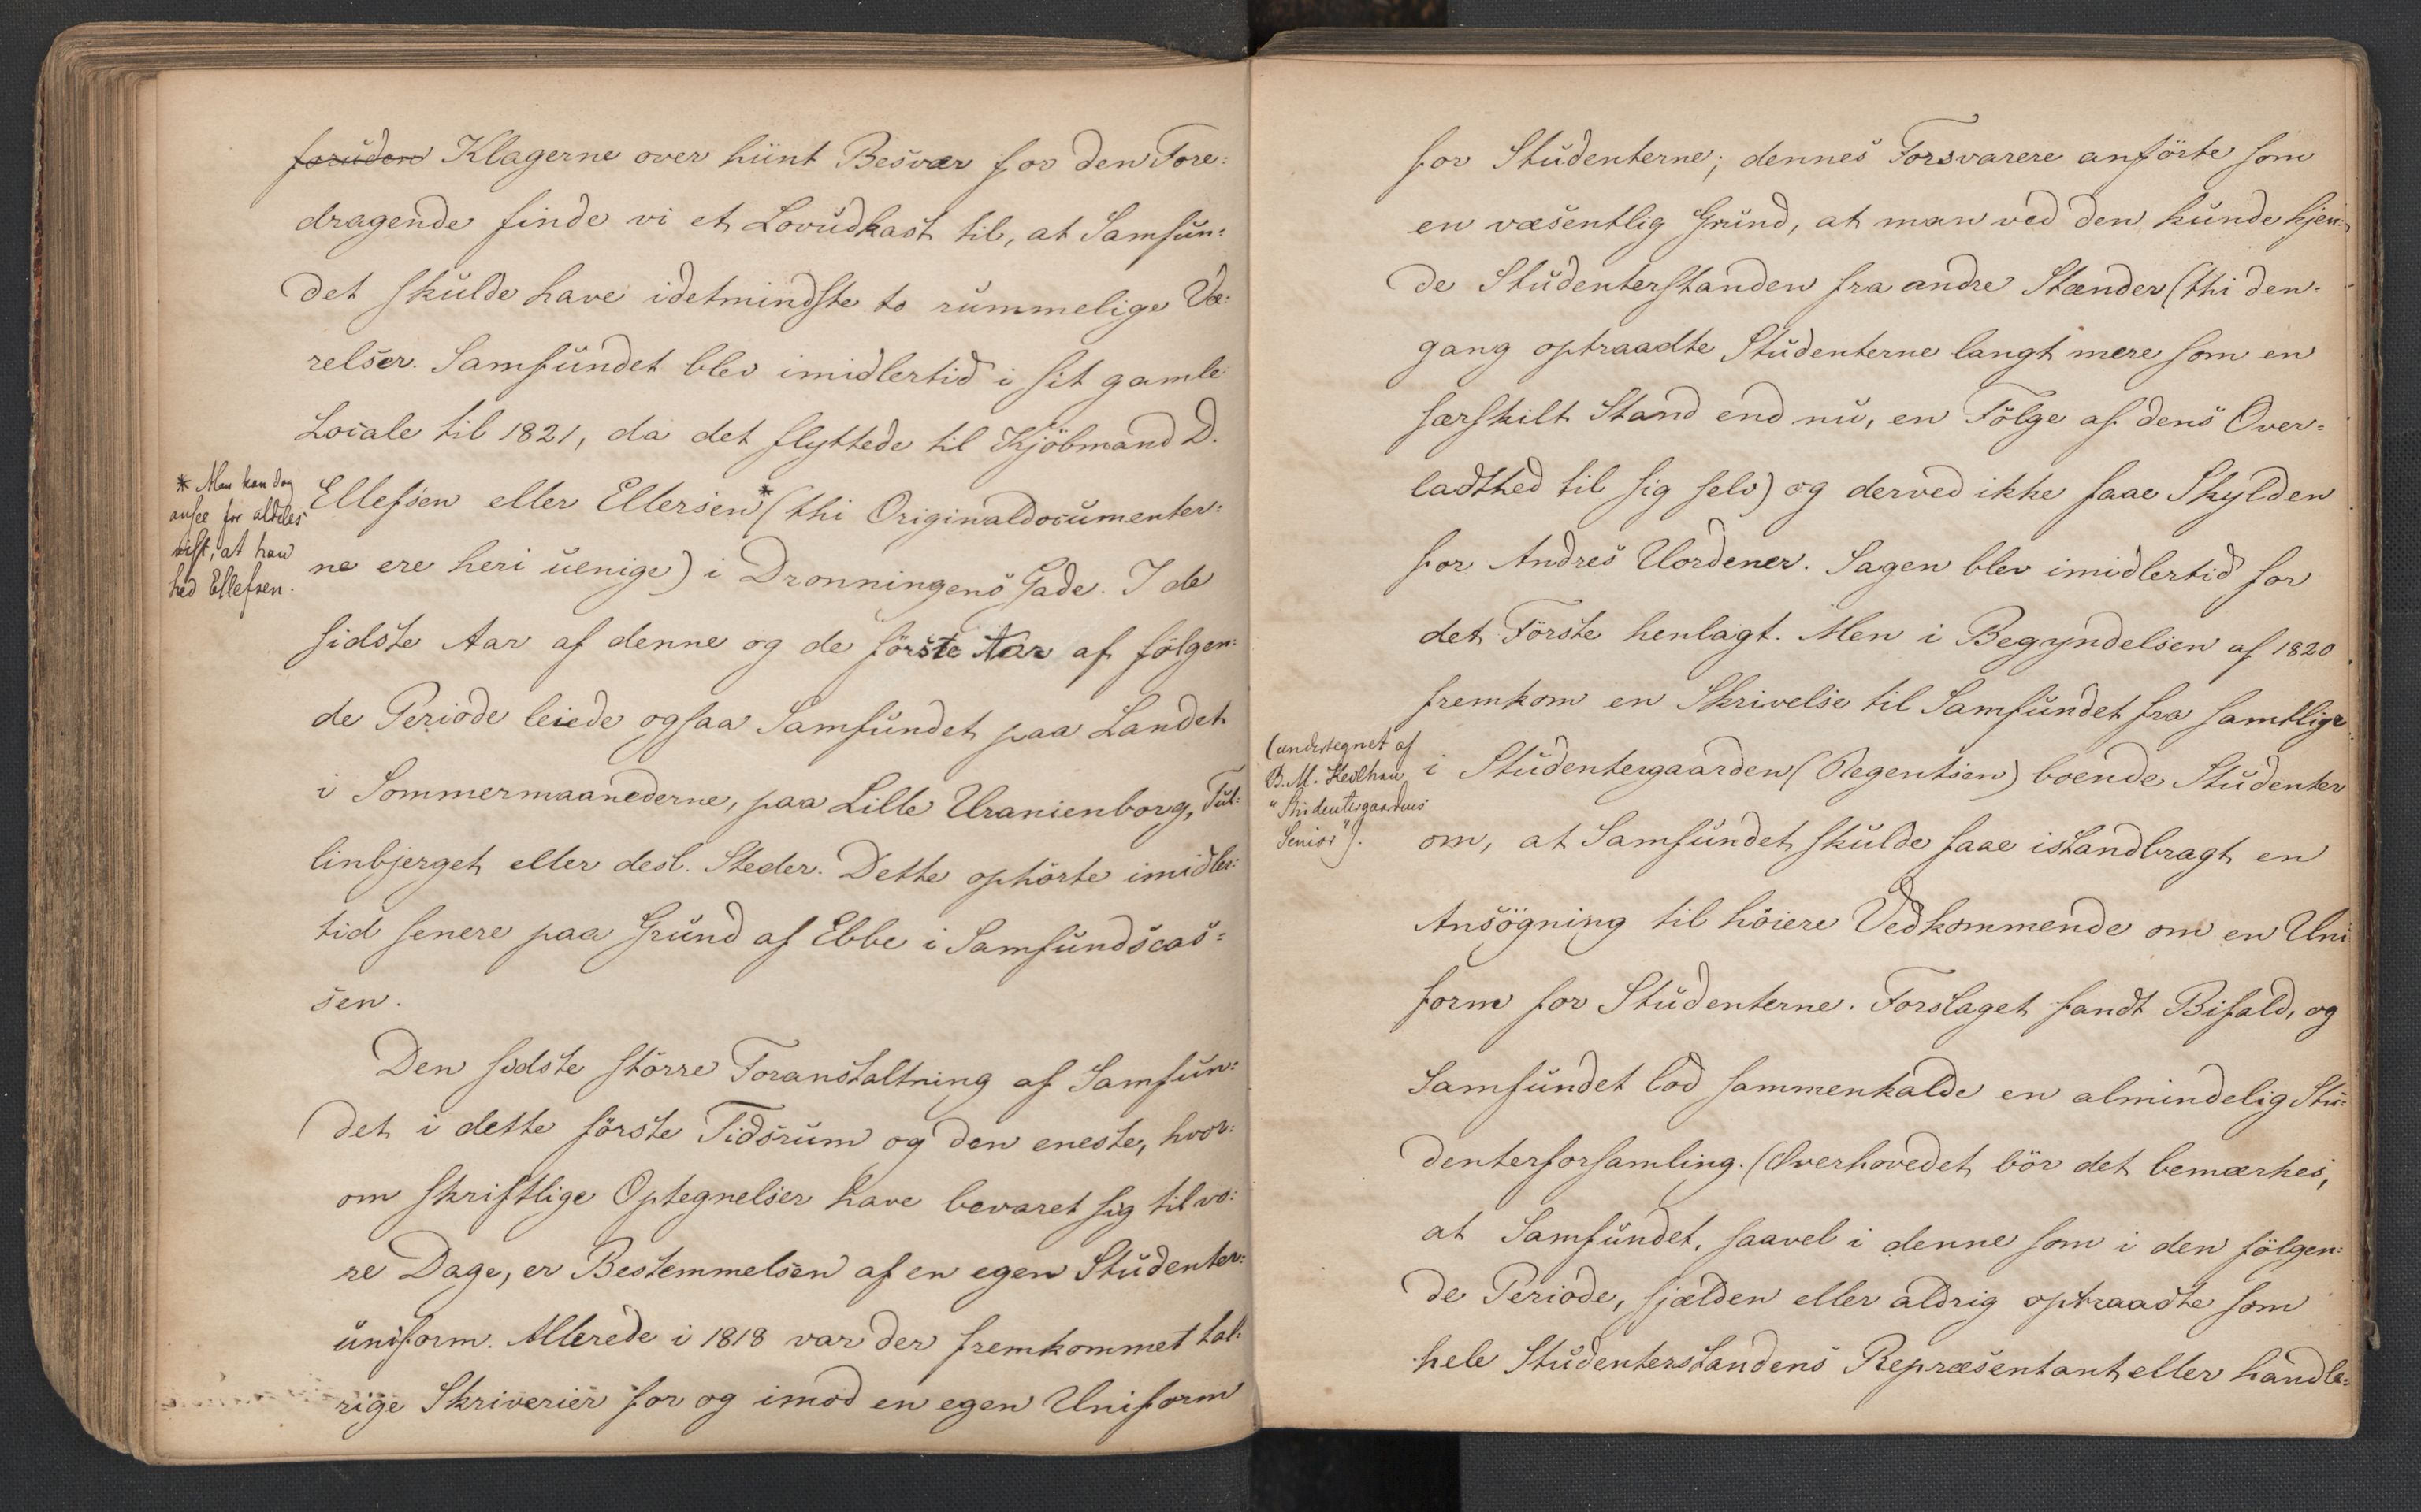 foruden Klagerne over hiint Besvær for den Fore:
dragende finde vi et Lovudkast til, at Samfun:
det skulde have idetmindste to rummelige Væ:
relser. Samfundet blev imidlertid i sit gamle
Locale til 1821, da det flyttede til Kjöbmand D.
Ellefsen eller Ellersen* (thi Originaldocumenter:
ne ere heri uenige) i Dronningens Gade. I de
sidste Aar af denne og de förste Aar af fölgen:
de Periode leiede ogsaa Samfundet paa Landet
i Sommermaanederne, paa Lille Uranienborg, Tul:
linbjerget eller desl. Steder. Dette ophörte imidler:
tid senere paa Grund af Ebbe i Samfundscas:
sen.
Den sidste större Foranstaltning af Samfun:
det i dette förste Tidsrum og den eneste, hvor:
om skriftlige Optegnelser have bevaret sig til vo:
re Dage, er Bestemmelsen af en egen Studenter:
uniform. Allerede i 1818 var der fremkommet tal:
rige Skriverier for og imod en egen Uniform
* Man kan dog
ansee for aldeles
vist, at han
hed Ellefsen.
for Studenterne; dennes Forsvarere anförte som
en væsentlig Grund, at man ved den kunde kjen:
de Studenterstanden fra andre Stænder (thi den:
gang optraadte Studenterne langt mere som en
særskilt Stand end nu, en Fölge af dens Over:
ladthed til sig selv) og derved ikke faae Skylden
for Andres Uordener. Sagen blev imidlertid for
det Förste henlagt. Men i Begyndelsen af 1820
fremkom en Skrivelse til Samfundet fra samtlige
i Studentergaarden (Regentsen) boende Studenter
om, at Samfundet skulde faae istandbragt en
Ansögning til höiere Vedkommende om en Uni
form for Studenterne. Forslaget fandt Bifald, og
Samfundet lod sammenkalde en almindelig Stu:
denterforsamling. (Overhovedet bör det bemærkes,
at Samfundet, saavel i denne som i den fölgen:
de Periode, sjælden eller aldrig optraadte som
hele Studenterstandens Repræsentant eller handle:
(undertegnet af
B. M. Keilhau,
"Studentergaardens
Senior").